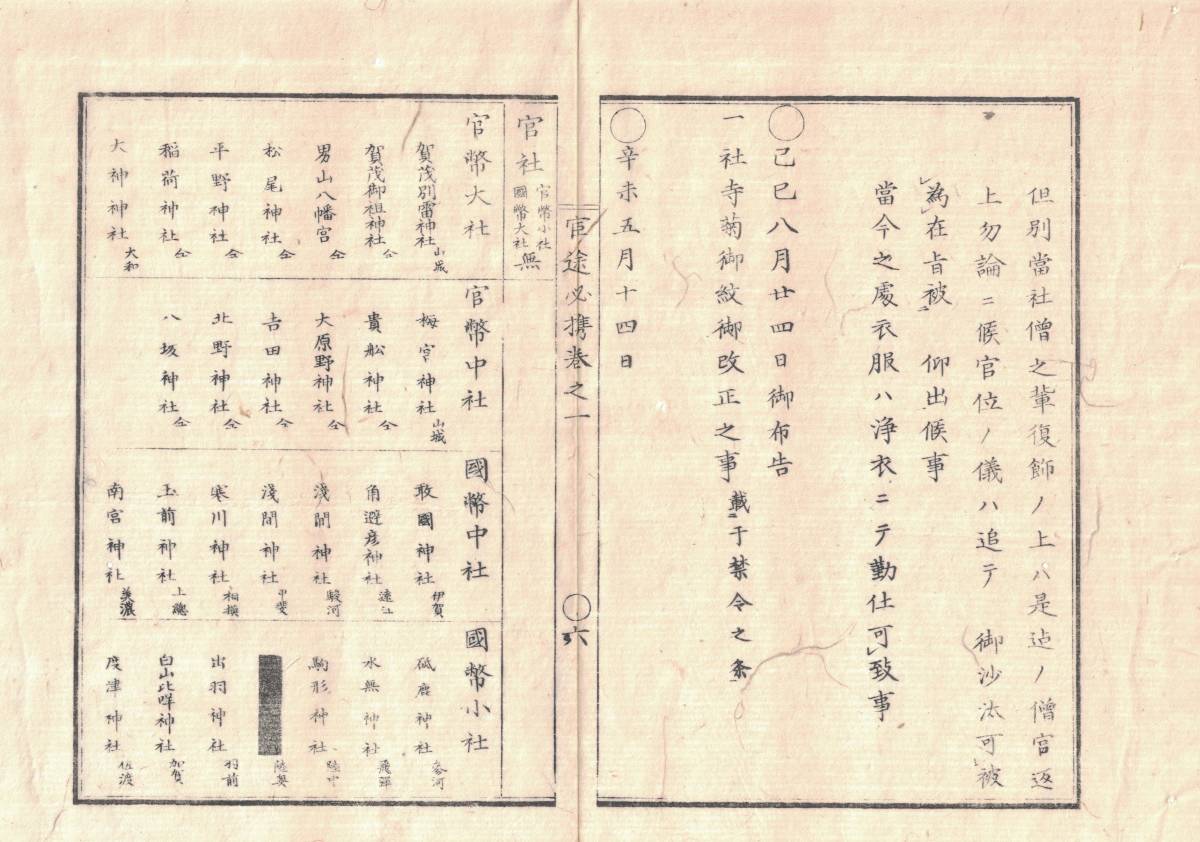 但別當社僧之輩復飾ノ上ハ是迠ノ僧官返
上勿論ニ候官位ノ儀ハ追テ 御沙汰可被
為在旨被 仰出候事
當今之處衣服ハ浄衣ニテ勤仕可致事
〇己巳八月廿四日御布告
一社寺菊御紋御改正之事 載于禁令之条
〇辛未五月十四日
官途必携巻之一
〇六
官社 官幣小社 國幣大社 無
官幣大社
賀茂別雷神社 山城
賀茂御祖神社 仝
男山八幡宮 仝
松尾神社 仝
平野神社 仝
稲荷神社 仝
大神神社 大和
官幣中社
梅宮神社 山城
貴舩神社 仝
大原野神社 仝
吉田神社 仝
北野神社 仝
八坂神社 仝
國幣中社
敢國神社 伊賀
角避彦神社 遠江
淺間神社 駿河
淺間神社 甲斐
寒川神社 相摸
玉前神社 上總
南宮神社 美濃
國幣小社
砥鹿神社 参河
水無神社 飛騨
駒形神社 陸中
陸奥
出羽神社 羽前
白山比咩神社 加賀
度津神社 佐渡